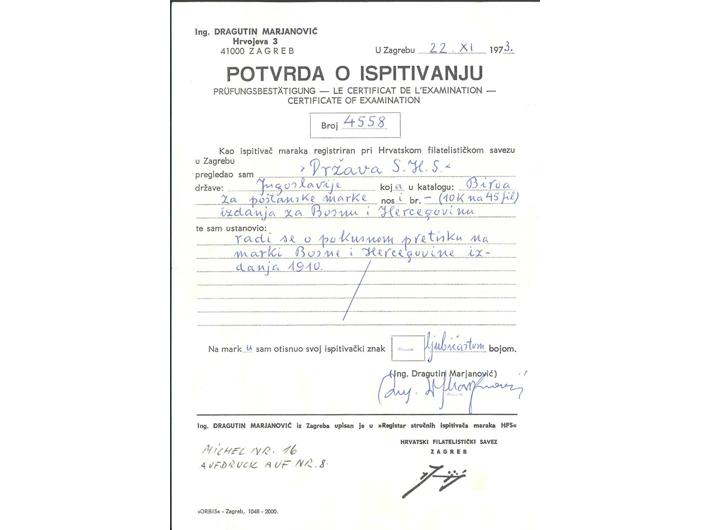 Ing. DRAGUTIN MARJANOVIĆ
Hrvojeva 3
41000 ZAGREB
U Zagrebu 22. XI 1973.
POTVRDA O ISPITIVANJU
PRÜFUNGSBESTÄTIGUNG — LE CERTIFICAT DE L'EXAMINATION —
CERTIFICATE OF EXAMINATION
Broj 4558
Kao ispitivač maraka registriran pri Hrvatskom filatelističkom savezu
u Zagrebu
pregledao sam "Država S.H.S."
države: Jugoslavije koja u katalogu: Biroa
za poštanske marke nosi br. – (10K na 45 fil)
izdanja za Bosnu i Hercegovinu
te sam ustanovio:
radi se o pokusnom pretisku na
marki Bosne i Hercegovine iz-
danja 1910.
Na mark u sam otisnuo svoj ispitivački znak ljubičastom bojom.
(Ing. Dragutin Marjanović)
Ing. DRAGUTIN MARJANOVIĆ iz Zagreba upisan je u »Registar stručnih ispitivača maraka HFS«
MICHEL NR. 16
AUFDRUCK AUF NR. 8.
HRVATSKI FILATELISTIČKI SAVEZ
ZAGREB
»ORBIS« - Zagreb, 1048 - 2000.